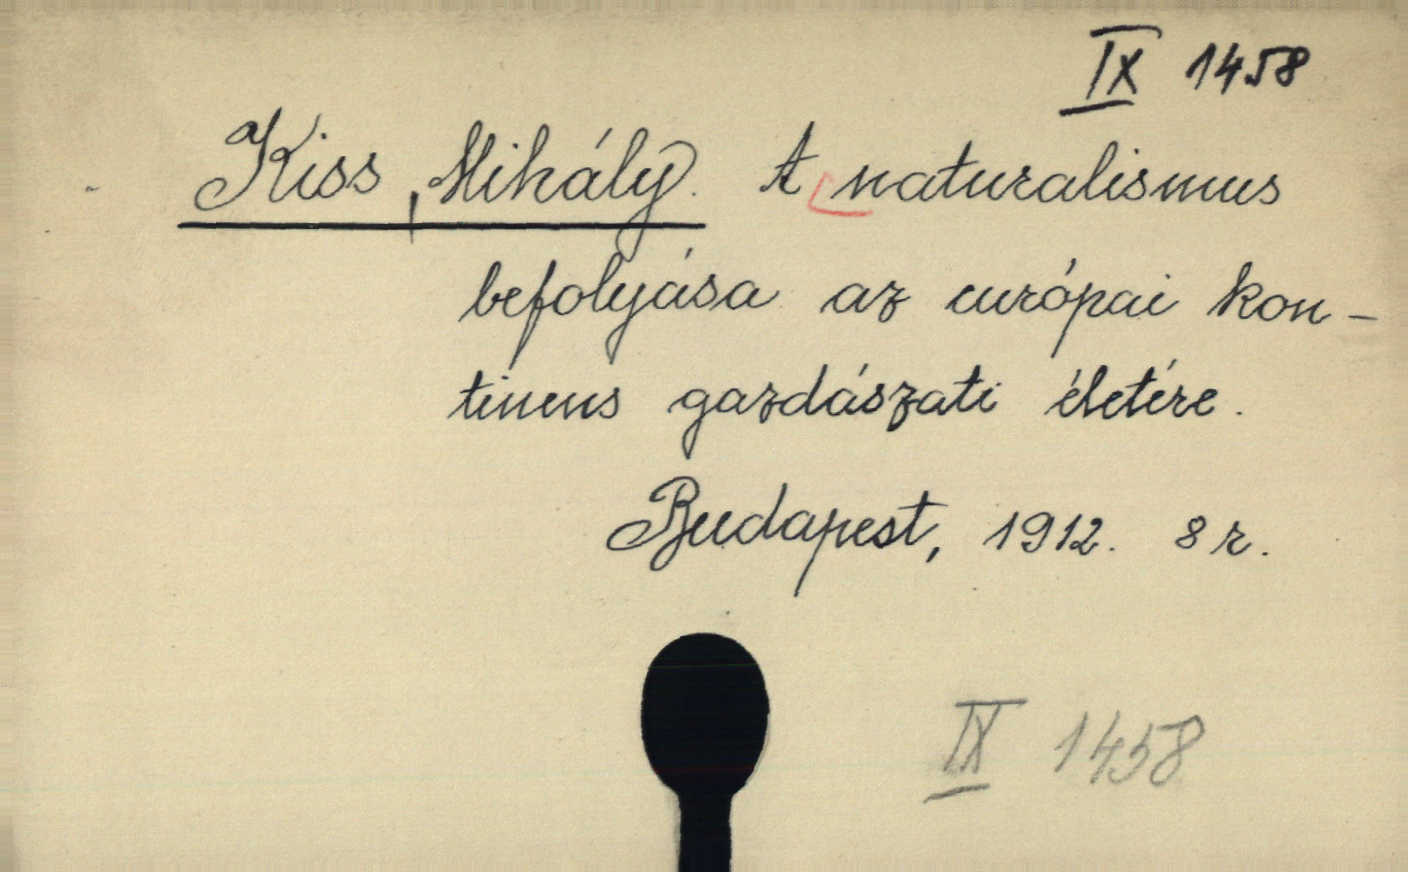 IX 1458
Kiss, Mihály. A naturalismus
befolyása az európai kon-
tinens gazdászati életére.
Budapest, 1912. 8 r.
IX 1458